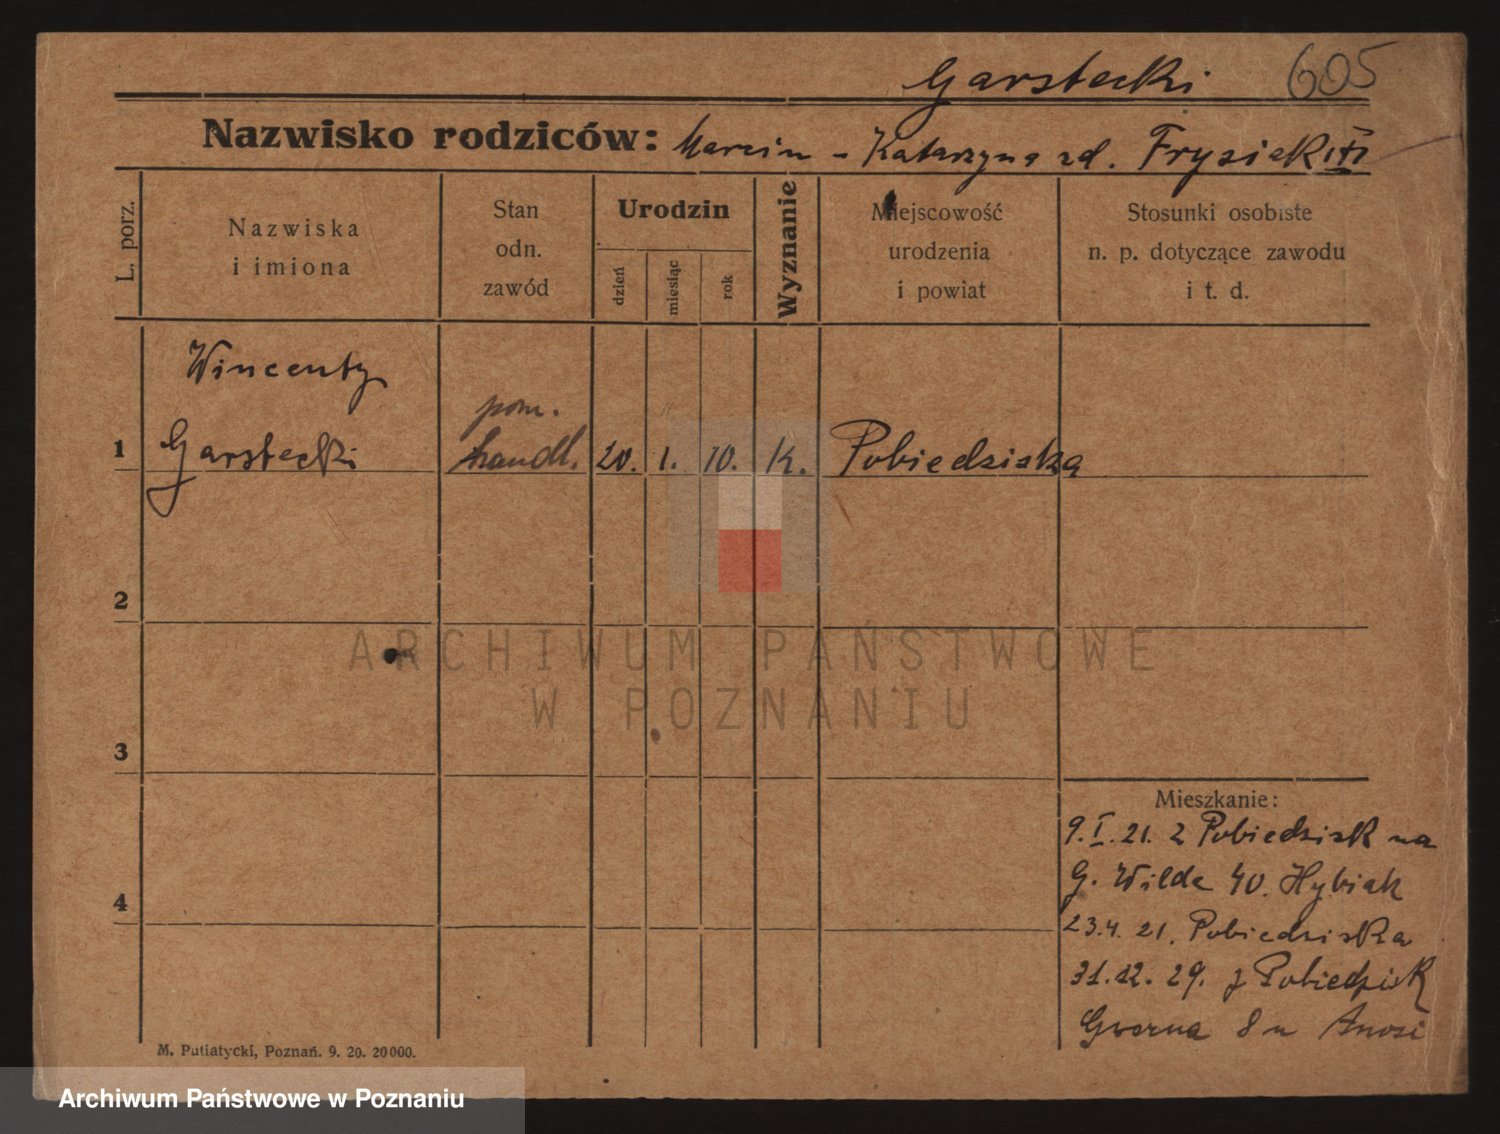 Garstecki 605
Nazwisko rodziców: Marcin - Katarzyna zd. Frysiak
L. porz.
Nazwiska
i imiona
Stan
odn.
zawód
Urodzin
dzień
miesiąc
rok
Wyznanie
Miejscowość
urodzenia
i powiat
Stosunki osobiste
n. p. dotyczące zawodu
i t. d.
Wincenty
1 Garstecki
pom.
handl. 20. 1. 10. k. Pobiedziska
2
3
4
ARCHIWUM PAŃSTWOWE
W POZNANIU
Mieszkanie:
9. I. 21. z Pobiedzisk na
G. Wilda 40. Hybiak
23.4. 21. Pobiedziska
31.12. 29. z Pobiedzisk
8 u
M. Putiatycki, Poznań. 9. 20. 20000.
Archiwum Państwowe w Poznaniu